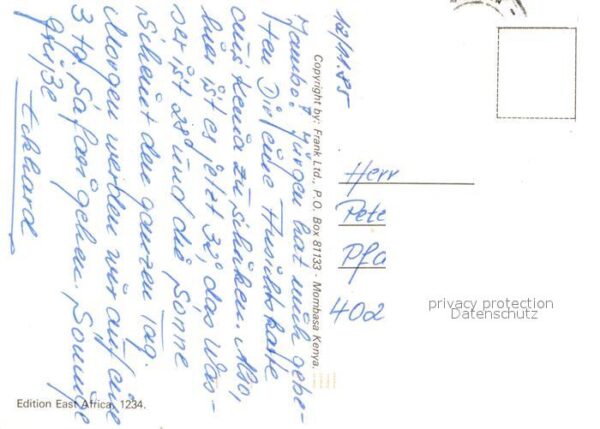 12/11.85
Jambo! Jürgen hat mich gebe-
ten Dir eine Ansichtskarte
aus Kenia zu schicken. Also,
hier ist es jetzt 32°, das Was-
ser ist 28° und die Sonne
scheint den ganzen Tag.
Morgen werden wir auf eine
3 td. Safari gehen. Sonnige
Grüße
Eckhard
Copyright by: Frank Ltd., P.O. Box 81133 - Mombasa Kenya.
Herr
Pete
Pfa
402
privacy protection
Datenschutz
Edition East Africa, 1234.